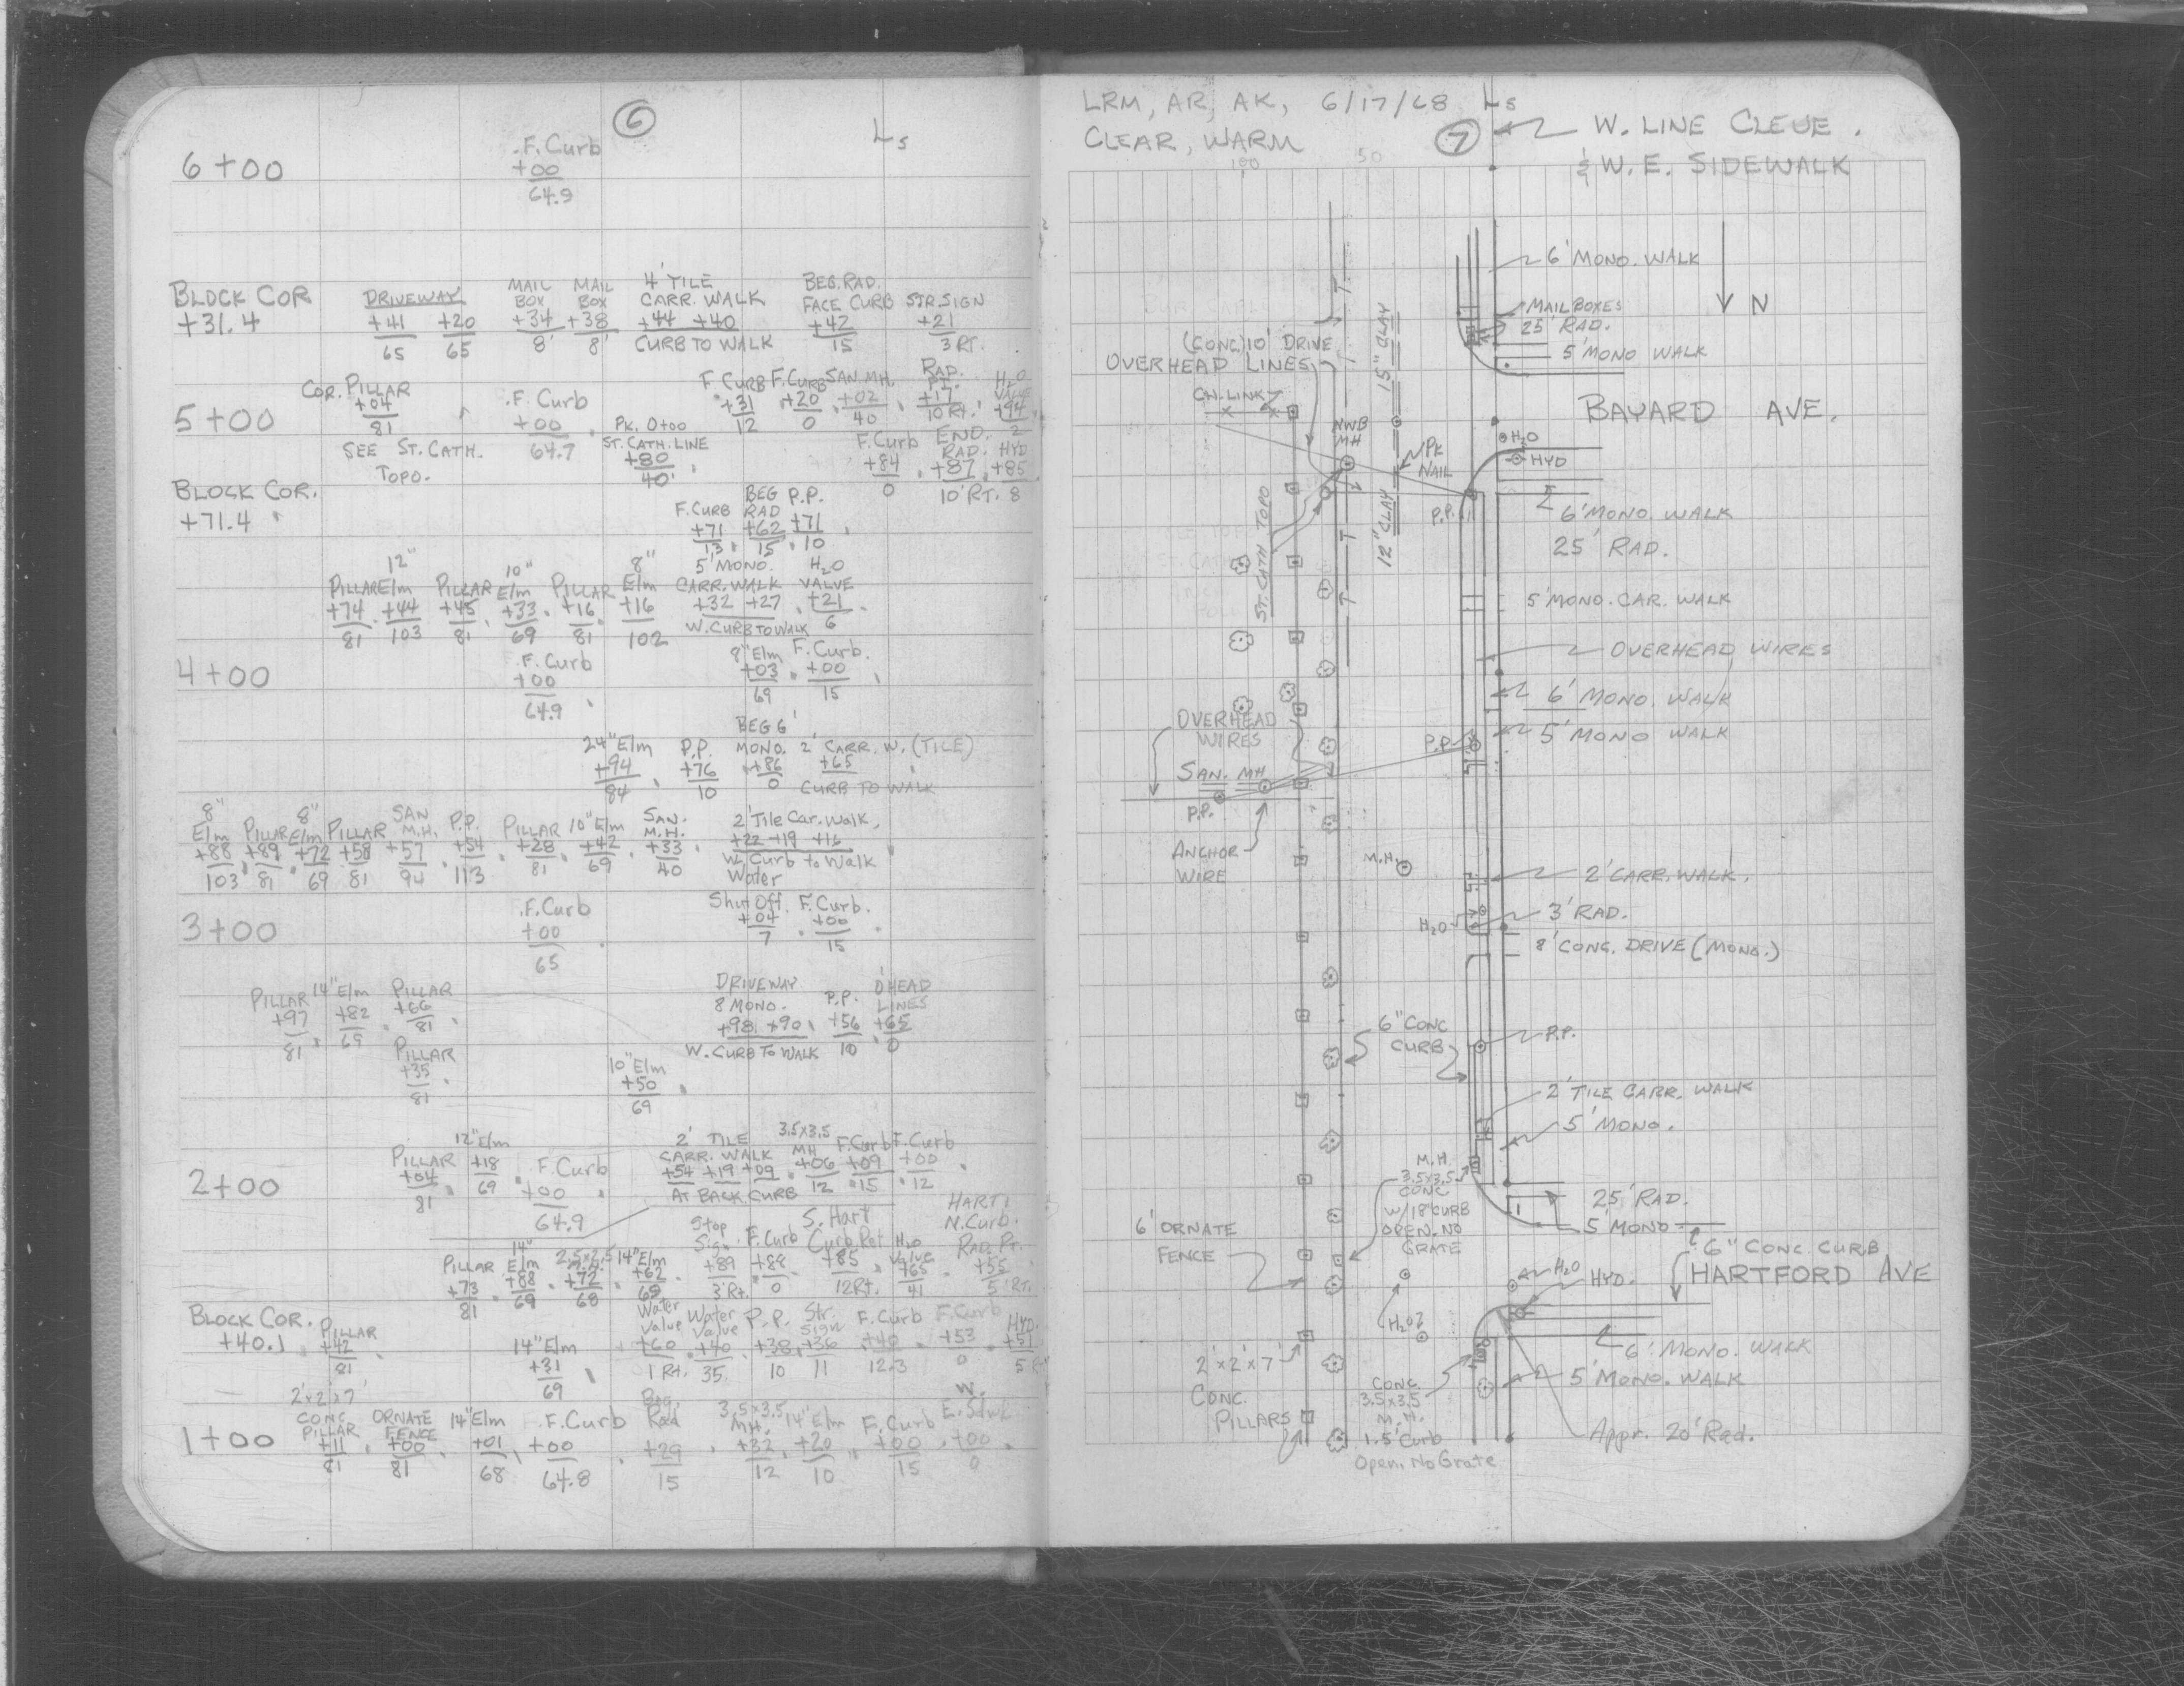 6
Ls
6+00
.F. Curb
+00
64.9
BLOCK COR
+31.4
DRIVEWAY
+41 +20
65 65
MAIL BOX
+34
8'
MAIL BOX
+38
8'
4' TILE
CARR. WALK
+44 +40
CURB TO WALK
BEG. RAD.
FACE CURB
+42
15
STR. SIGN
+21
3 RT.
5+00
COR. PILLAR
+04
81
SEE ST. CATH.
TOPO.
.F. Curb
+00
64.7
PK. 0+00
ST. CATH. LINE
+80
40'
F. CURB
+31
12
F. CURB
+20
0
SAN. MH.
+02
40
RAD. PT.
+17
10 RT.
H2O
VALVE
+94
2
F. Curb
+84
0
END. RAD.
+87
10' RT.
HYD
+85
8
BLOCK COR.
+71.4
F. CURB
+71
13
BEG RAD
+62
15
P.P.
+71
10
PILLAR
+74
81
12" Elm
+44
103
PILLAR
+45
81
10" Elm
+33
69
PILLAR
+16
81
8" Elm
+16
102
5' MONO.
CARR. WALK
+32 +27
W. CURB TO WALK
H2O
VALVE
+21
6
4+00
.F. Curb
+00
64.9
8" Elm
+03
69
F. Curb.
+00
15
24" Elm
+94
84
P.P.
+76
10
BEG 6'
MONO.
+86
0
2' CARR. W. (TILE)
+65
CURB TO WALK
8" Elm
+88
103
PILLAR
+89
81
8" Elm
+72
69
PILLAR
+58
81
SAN M.H.
+57
94
P.P.
+54
113
PILLAR
+28
81
10" Elm
+42
69
SAN. M.H.
+33
40
2' Tile Car. Walk,
+22 +19 +16
W. Curb to Walk
3+00
.F. Curb
+00
65
Water
Shut Off
+04
7
F. Curb.
+00
15
PILLAR
+97
81
14" Elm
+82
69
PILLAR
+66
81
DRIVEWAY
8 MONO.
+98 +90
W. CURB TO WALK
P.P.
+56
10
O'HEAD
LINES
+65
0
PILLAR
+35
81
10" Elm
+50
69
2+00
PILLAR
+04
81
12" Elm
+18
69
F. Curb
+00
64.9
2' TILE
CARR. WALK
+54 +19 +09
AT BACK CURB
3.5x3.5
MH
+06
12
F. Curb
+09
15
F. Curb
+00
12
PILLAR
+73
81
14" Elm
+88
69
2.5x2.5'
+72
68
14" Elm
+62
69
Stop Sign
+89
3' Rt.
F. Curb
+88
0
S. Hart
Curb Ret
+85
12 RT.
H2O
Valve
+65
41
HART
N. Curb.
RAD. PT.
+55
5' RT.
BLOCK COR.
+40.1
PILLAR
+42
81
14" Elm
+31
69
Water Valve
+60
1 Rt.
Water Valve
+40
35
P.P.
+38
10
Str. Sign
+36
11
F. Curb
+40
12.3
F. Curb
+53
0
HYD.
+51
5
1+00
2'x2'x7'
CONC.
PILLAR
+11
81
ORNATE
FENCE
+00
81
14" Elm
+01
68
.F. Curb
+00
64.8
Beg. Rad
+29
15
3.5x3.5
MH.
+32
12
14" Elm
+20
10
F. Curb
+00
15
W.
E. Sdwk
+00
0
LRM, AR, AK, 6/17/68
CLEAR, WARM
7
Ls
W. LINE CLEVE.
& W. E. SIDEWALK
100
50
6' MONO. WALK
N
MAILBOXES
25' RAD.
5' MONO WALK
(CONC) 10' DRIVE
OVERHEAD LINES
CH. LINK
15" CLAY
BAYARD AVE.
NWB
MH
PK
NAIL
H2O
HYD
12" CLAY
P.P.
6' MONO. WALK
25' RAD.
ST. CATH TOPO
5' MONO. CAR. WALK
OVERHEAD WIRES
6' MONO. WALK
5' MONO WALK
OVERHEAD
WIRES
P.P.
SAN. MH
P.P.
ANCHOR
WIRE
M.H.
2' CARR. WALK.
3' RAD.
H2O
8' CONC. DRIVE (MONO.)
6" CONC
CURB
P.P.
2' TILE CARR. WALK
5' MONO.
M.H
3.5x3.5
CONC
W/18" CURB
OPEN. NO
GRATE
25' RAD.
5' MONO
6' ORNATE
FENCE
6" CONC. CURB
HARTFORD AVE
H2O
HYD.
H2O?
6' MONO. WALK
2'x2'x7'
CONC.
PILLARS
CONC.
3.5x3.5
M.H.
1.5' Curb
Open. No Grate
5' MONO. WALK
Appr. 20' Rad.